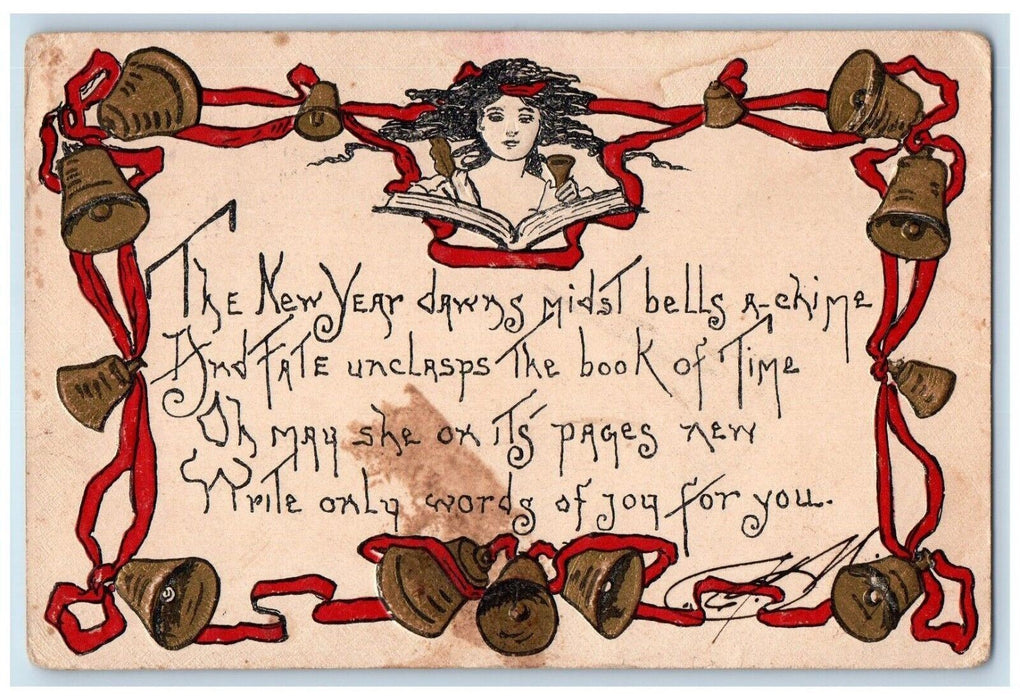 The New Year dawns midst bells a-chime
And Fate unclasps the book of Time
Oh may she on it's pages new
Write only words of joy for you.